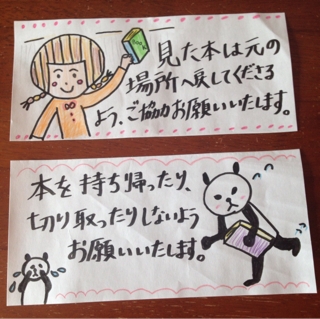 見た本は元の
場所へ戻してくださる
よう、ご協力お願いいたします。
本を持ち帰ったり、
切り取ったりしないよう
お願いいたします。